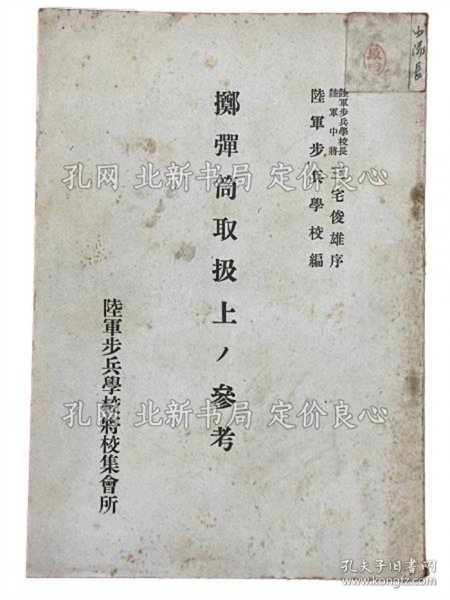 中隊長
陸軍步兵學校長
陸軍中將
三宅俊雄序
陸軍步兵學校編
擲彈筒取扱上ノ參考
陸軍步兵學校將校集會所
孔网 北新书局 定价良心
孔网 北新书局 定价良心
孔夫子旧书网
www.kongfz.com